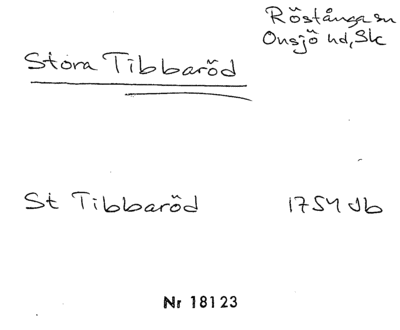 Röstånga sn
Onsjö hd, Sk
Stora Tibbaröd
St Tibbaröd 1754 Jb
Nr 18123